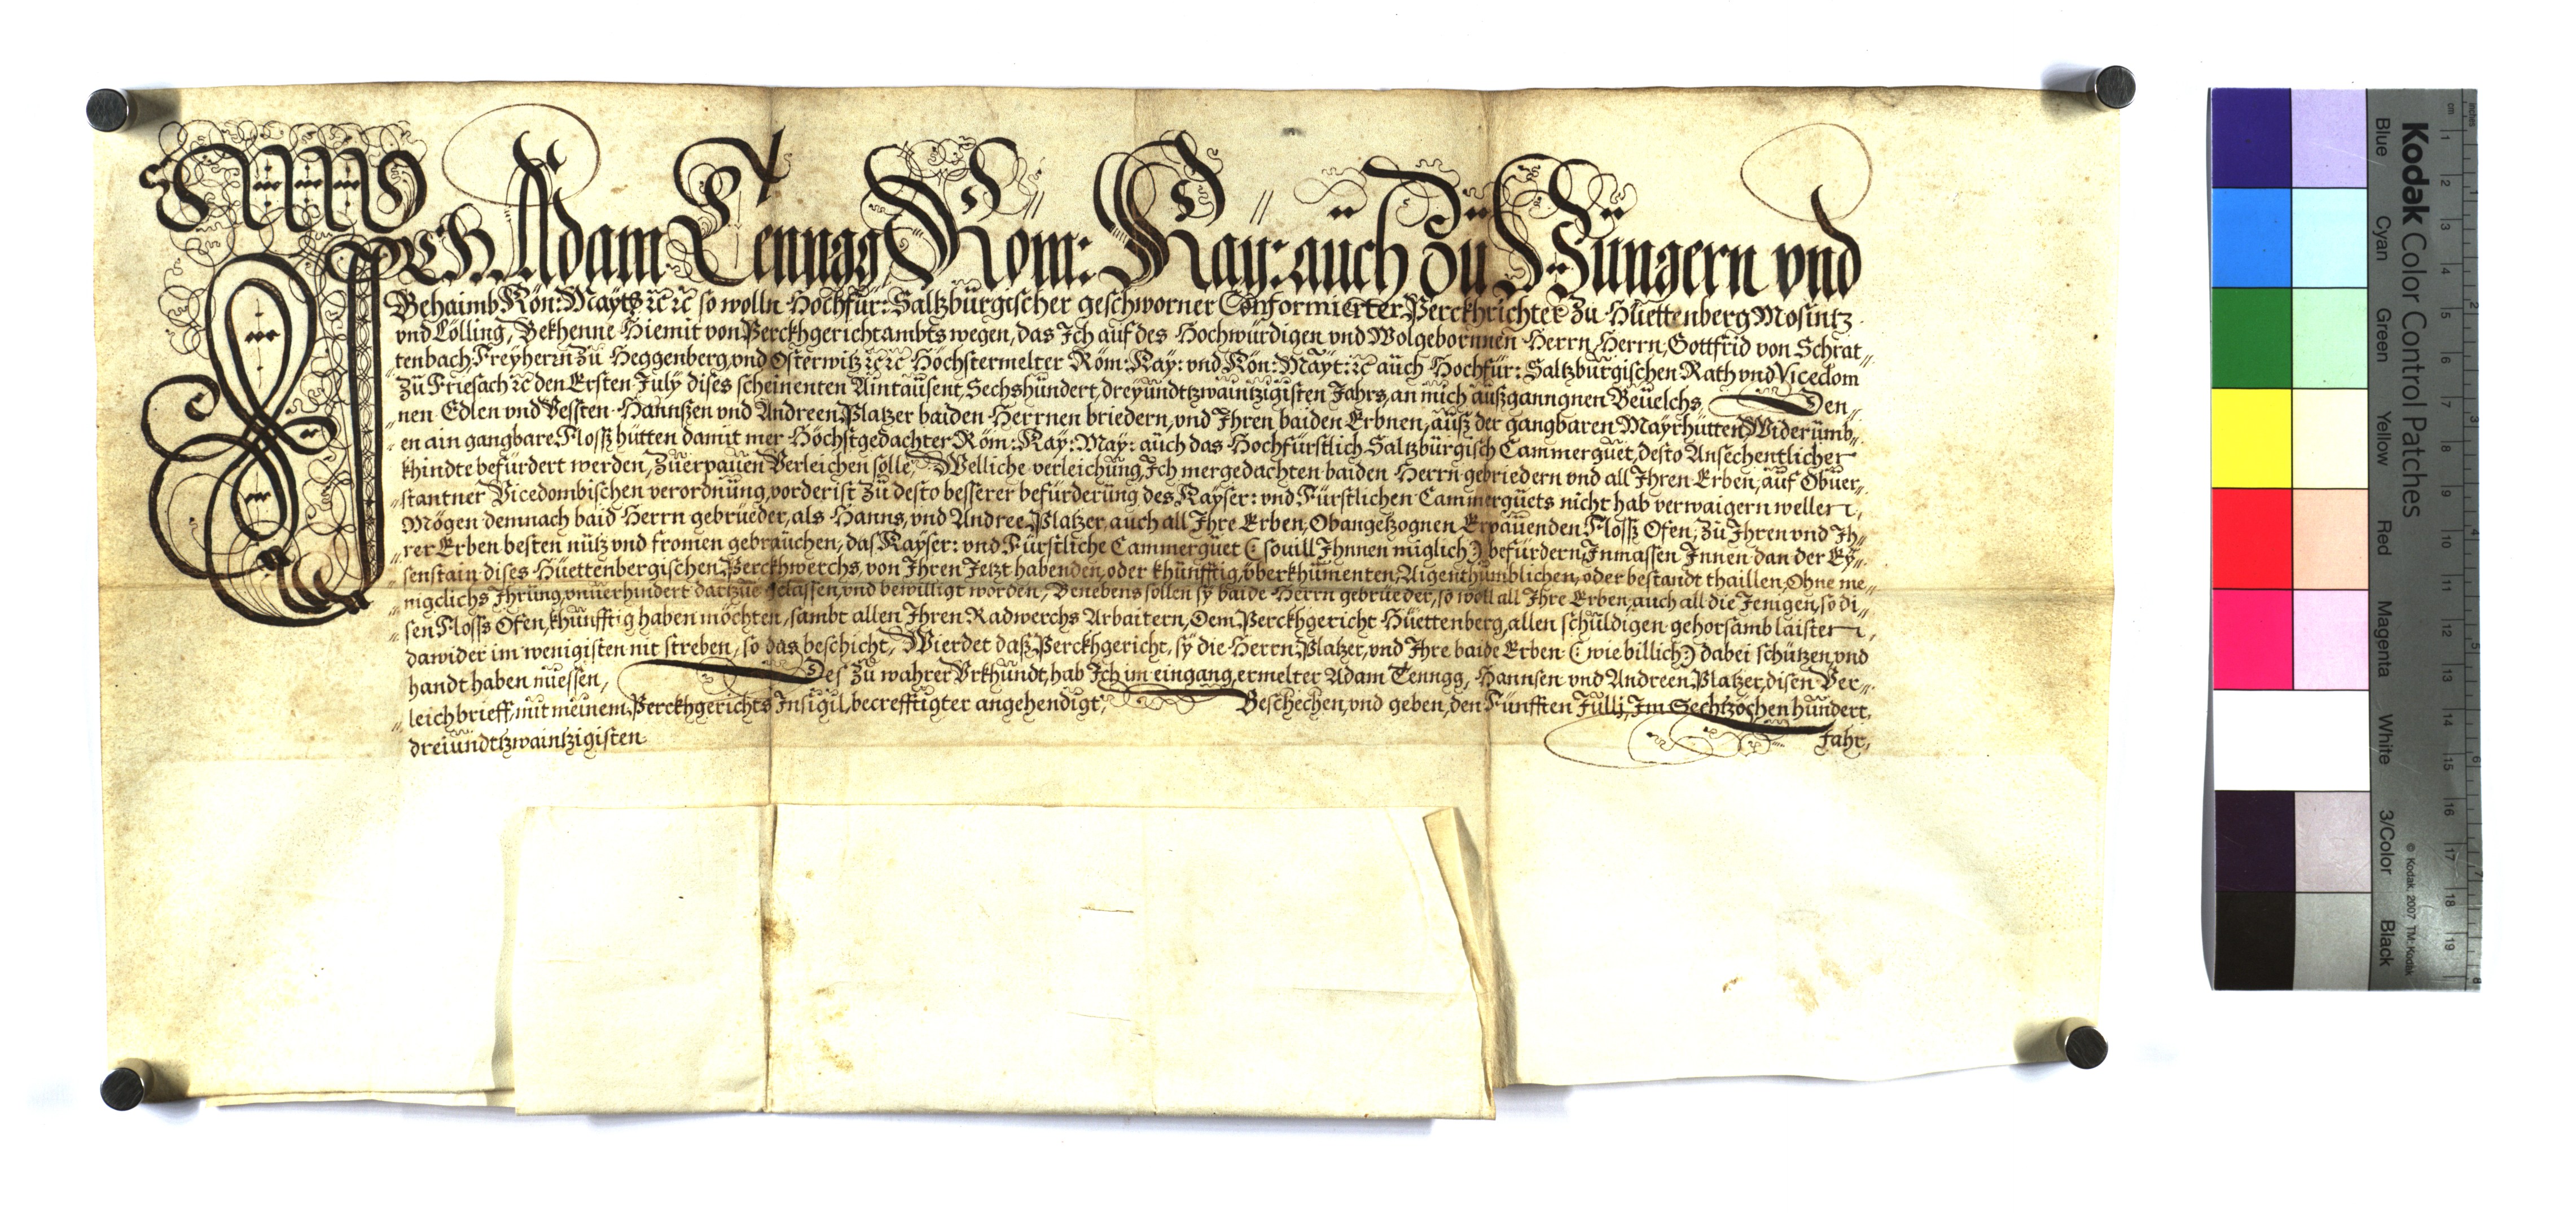 ICH Adam Tennagg Röm: Kay: auch zu Hüngern vnd
Behaimb Kön: Mayts ꝛc ꝛc so wolln Hochfür: Saltzbürgischer geschworner Conformierter Perckhrichter Zu Hüettenberg Mosintz
vnd Lölling, Bekhenne Hiemit von Perckhgerichtambts wegen, das Ich auf des Hochwürdigen vnd Wolgebornnen Herrn, Herrn, Gottfrid von Schrat„
„tenbach, Freyherrn zü Heggenberg, vnd Osterwitz ꝛc ꝛc Höchstermelter Röm: Kay: vnd Kön: Mayt: ꝛc auch Hochfür: Saltzbürgischen Rath vnd Vicedom
zü Friesach ꝛc den Ersten July dises scheinenten Aintaüsent, Sechshündert, dreyündtzwaintzigisten Jahrs, an mich aüßganngnen Beüelchs, Den„
„nen Edlen vnd Vessten Hannßen vnd Andreen Platzer baiden Herrnen briedern, vnd Ihren baiden Erbnen, aüß der gangbaren Mayrhütten Widerümb„
„en ain gangbare Flosß hütten damit mer Höchstgedachter Röm: Kay: May: aüch das Hochfürstlich Saltzbürgisch Cammergüet, desto Ansechentlicher
khindte befürdert werden, Züerpaüen Verleichen solle, Welliche verleichüng, Ich mergedachten baiden Herrn gebriedern vnd all Ihren Erben, aüf Obüer„
„stantner Vicedombischen verordnüng, vorderist Zü desto besserer befürderüng des Kayser: vnd Fürstlichen Cammergüets nicht hab verwaigern wellen,
Mögen demnach baid Herrn gebrüeder, als Hanns, vnd Andree Platzer, auch all Ihre Erben, Obangetzognen Erpaüenden Flosß Ofen, Zü Ihren vnd Ih„
„rer Erben besten nütz vnd fromen gebraüchen, das Kayser: vnd Fürstliche Cammergüet (: souill Ihnnen miglich :) befürdern, Inmassen Innen dan der Ey„
senstain dises Hüettenbergischen Perckhwerchs, von Ihren Jetzt habenden, oder khünfftig, überkhümenten, Aigenthümblichen, oder bestandt thaillen, Ohne me„
„nigclichs Ihrüng, vnüerhindert dartzüe gelassen, vnd bewilligt worden, Benebens sollen sy baide Herrn gebrüeder, so woll all Ihre Erben, auch all die Jenigen, so di„
„sen Floss Ofen, khünfftig haben möchten, sambt allen Ihren Radwerchs Arbaitern, Dem Perckhgericht Hüettenberg, allen schüldigen gehorsamb laisten,
dawider im wenigisten nit streben, so das beschicht, Wierdet daß Perckhgericht, sy die Herrn Platzer, vnd Ihre baide Erben (: wie billich :) dabei schützen, vnd
handt haben müessen, Des Zü wahrer Vrkhündt, hab Ich im eingang, ermelter Adam Tenngg, Hannsen vnd Andreen Platzer, disen Ver„
„leichbrieff, mit meinem Perckhgerichts Insigil, becrefftigter angehendigt, Beschechen, vnd geben, den Fünfften Jülli, Im Sechtzöchenhündert,
dreiündtzwaintzigisten Jahr,
Kodak Color Control Patches
Blue Cyan Green Yellow Red Magenta White 3/Color Black
© Kodak, 2007 TM: Kodak
cm 1 2 3 4 5 6 7 8 9 10 11 12 13 14 15 16 17 18 19
inches 1 2 3 4 5 6 7 8